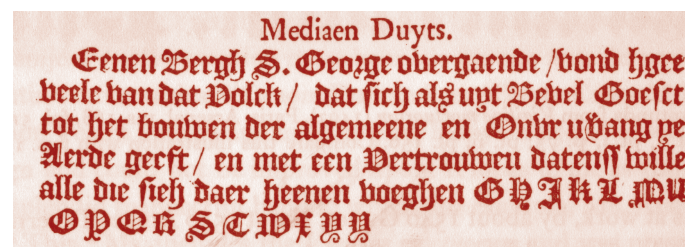 Mediaen Duyts.
Eenen Bergh S. George overgaende / vond hgee
veele van dat Volck / dat sich als uyt Bevel Goesct
tot het bouwen der algemeene en Onvr
Aerde geeft / en met een Vertrouwen wille
alle die sieh daer heenen voeghen G H J K L M U
O P Q R S T W X Y Y